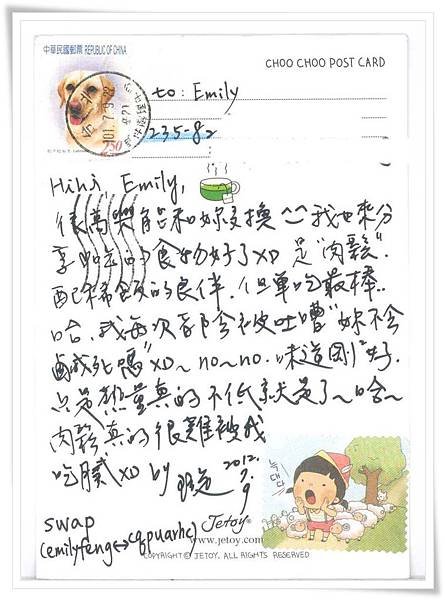 中華民國郵票 REPUBLIC OF CHINA
CHOO CHOO POST CARD
to: Emily
235-82
Hihi, Emily,
很高興能和妳交換 ^^ 我也來分
享好吃的食物好了XD 是"肉鬆".
配稀飯的良伴. 但單吃最棒..
哈. 我每次都會被吐嘈"妳不會
鹹死嗎"XD~no~no. 味道剛"好.
只是熱量真的不低就是了~哈~
肉鬆真的很難被我
吃膩XD by
2012.
7.9
늑대다
swap
(emilyfeng↔cqpuarhc)
Jetoy
www.jetoy.com
COPYRIGHT © JETOY. ALL RIGHTS RESERVED